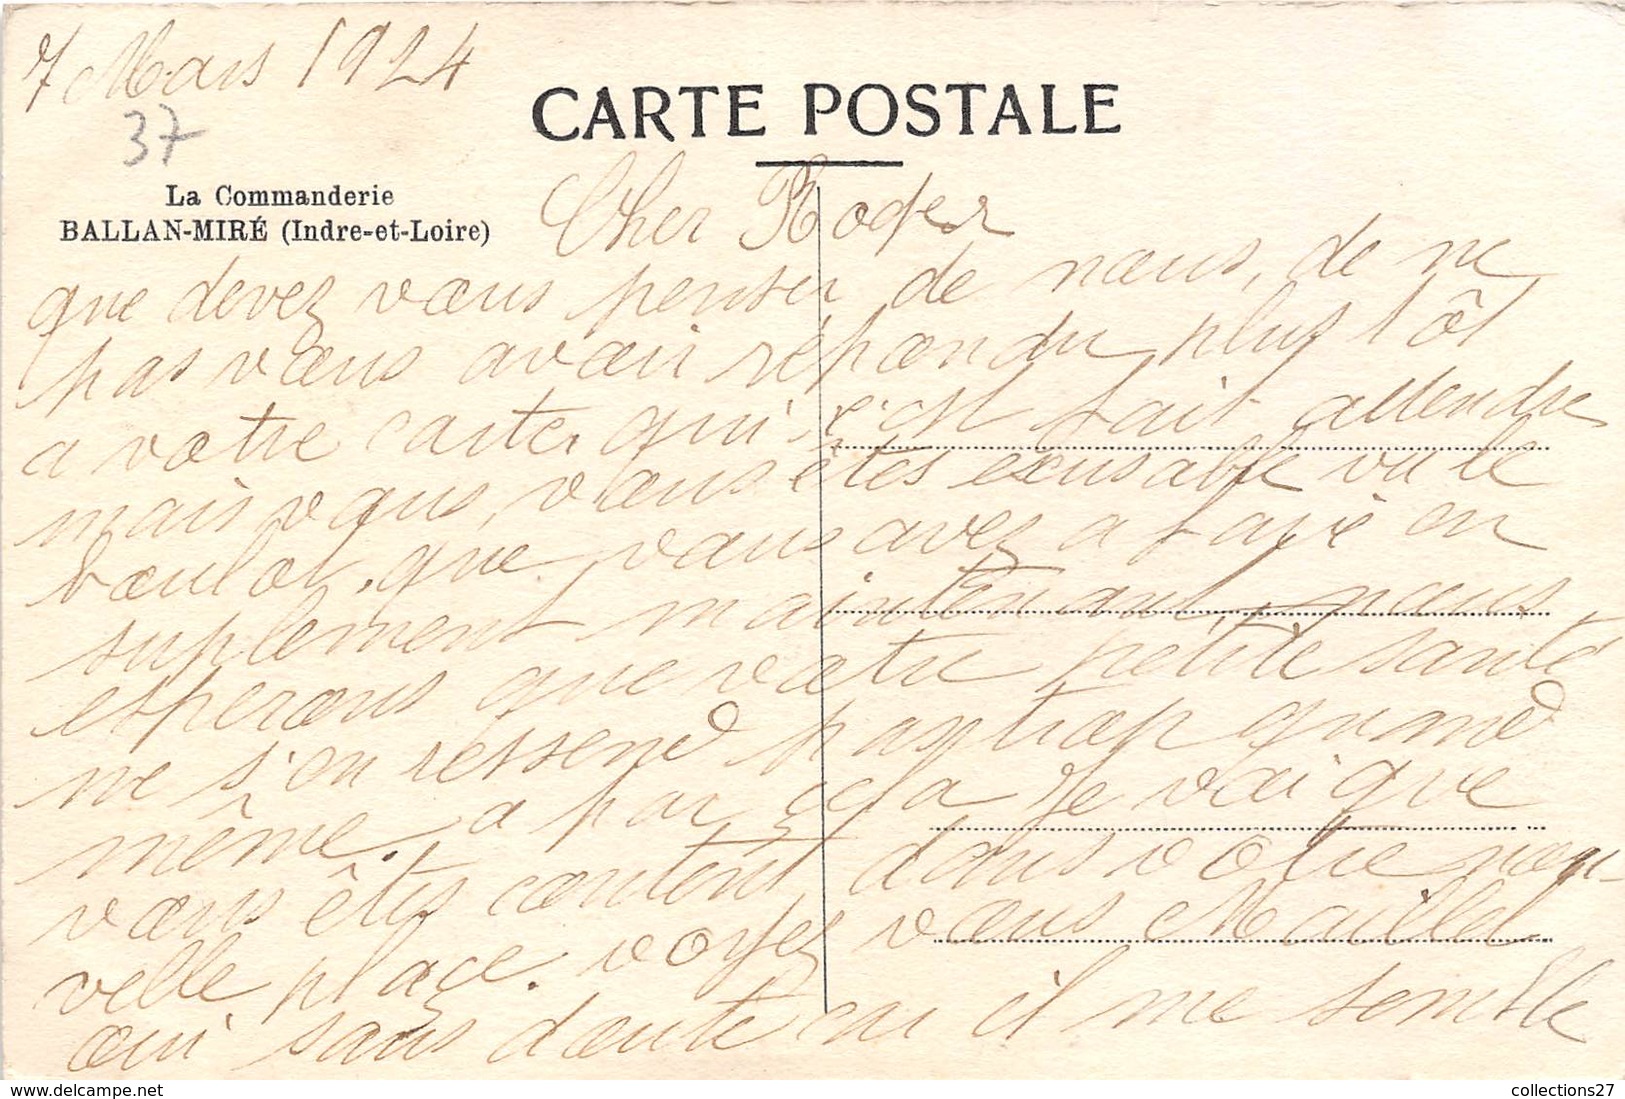 7 Mars 1924
CARTE POSTALE
37
La Commanderie
BALLAN-MIRÉ (Indre-et-Loire)
Cher Roger
que devez vous penser de nous, de ne
pas vous avoir répondu plus tôt
a votre carte, qui c'est fait attendre
mais vous, vous êtes excusable vu le
boulot, que vous avez a faire en
suplement maintenant, nous
esperons que votre petite santé
ne s'en ressend pas trop quand
même. a par cela je voi que
vous êtes content dans votre nou-
velle place. voyez vous Maillet
oui sans doute car il me semble
collections27